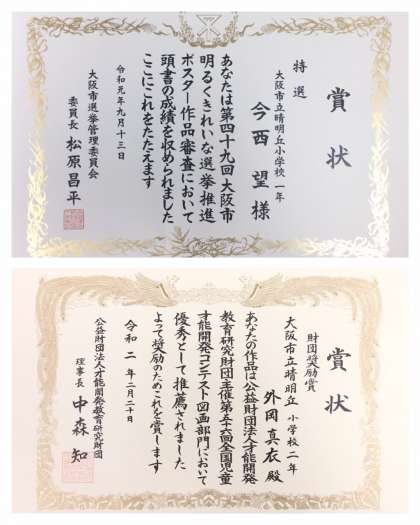 賞状
特選
大阪市立晴明丘小学校一年
今西望様
あなたは第四十九回大阪市
明るくきれいな選挙推進
ポスター作品審査において
頭書の成績を収められました
ここにこれをたたえます
令和元年九月十三日
大阪市選挙管理委員会
委員長 松原昌平
賞状
財団奨励賞
大阪市立晴明丘小学校二年
外岡真衣殿
あなたの作品は公益財団法人才能開発
教育研究財団主催第五十六回全国児童
才能開発コンテスト図画部門において
優秀として推薦されました
よって奨励のためこれを賞します
令和二年二月二十日
公益財団法人才能開発教育研究財団
理事長 中森知